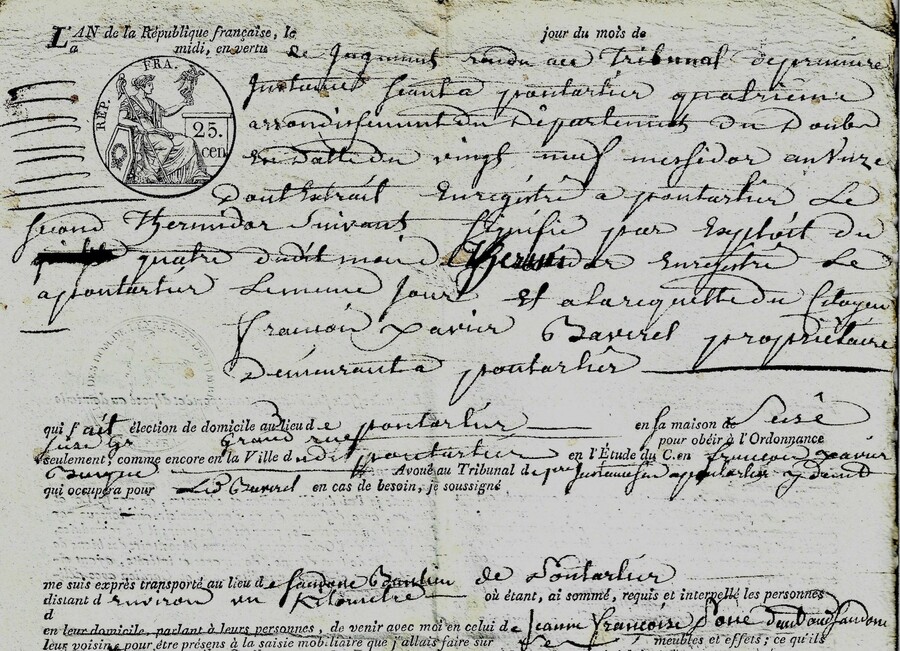 L'AN de la République française, le jour du mois de
a midi, en vertu de Jugement rendu au Tribunal de premiere
Instance seant a pontarlier quatrième
arrondissement du Département du Doubs
En datte du vingt neuf messidor an onze
dont Extrait Enregistré a pontarlier Le
second Thermidor suivant signifié par Exploit du
quatre dudit mois Thermidor Enregistré Le
a pontarlier Le meme Jour Et a la requette du Citoyen
françois Xavier Bavirel propriétaire
Demeurant a pontarlier
RÉP. FRA.
25.
cen
qui fait élection de domicile au lieu de pontarlier en sa maison de
Grand rue pour obéir à l'Ordonnance
seulement; comme encore en la Ville dudit pontarlier en l'Étude du C.en françois Xavier
Avoué au Tribunal de pre Instance pontarlier y demt
qui occupera pour Led Bavirel en cas de besoin, je soussigné
me suis exprès transporté au lieu de de Pontarlier
distant d'environ un Kilomètre où étant, ai sommé, requis et interpellé les personnes
d
en leur domicile, parlant à leurs personnes, de venir avec moi en celui de Jeanne Françoise
leur voisine pour être présens à la saisie mobiliaire que j'allais faire sur meubles et effets; ce qu'ils